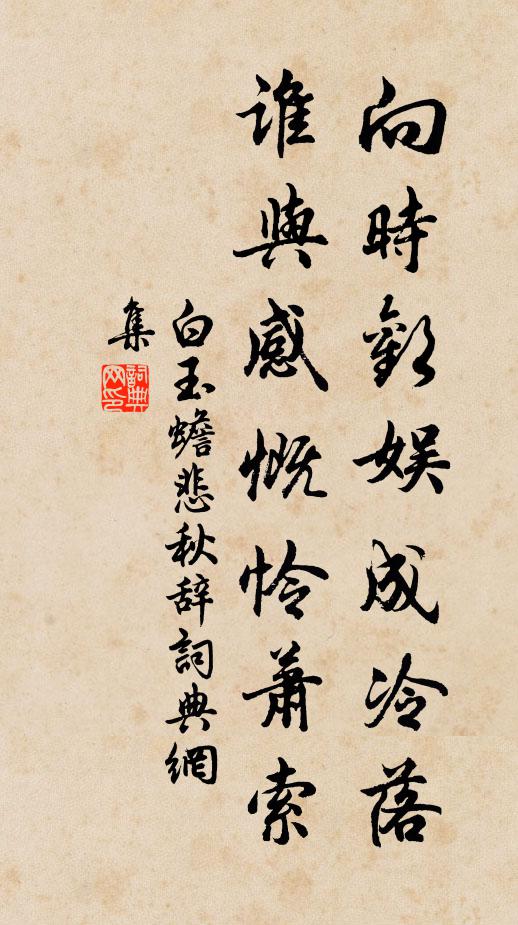 向時歡娱成冷落
誰與感慨怜蕭索
白玉蟾悲秋辞詞典網
集
詞典
网印